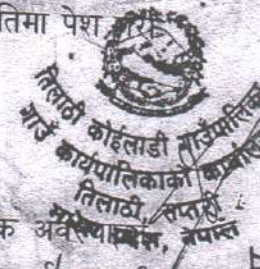 तिमा पेश
तिलाठी कोईलाडी गाउँपालिका
गाउँ कार्यपालिकाको कार्यालय
तिलाठी, सप्तरी
प्रदेश, नेपाल
क